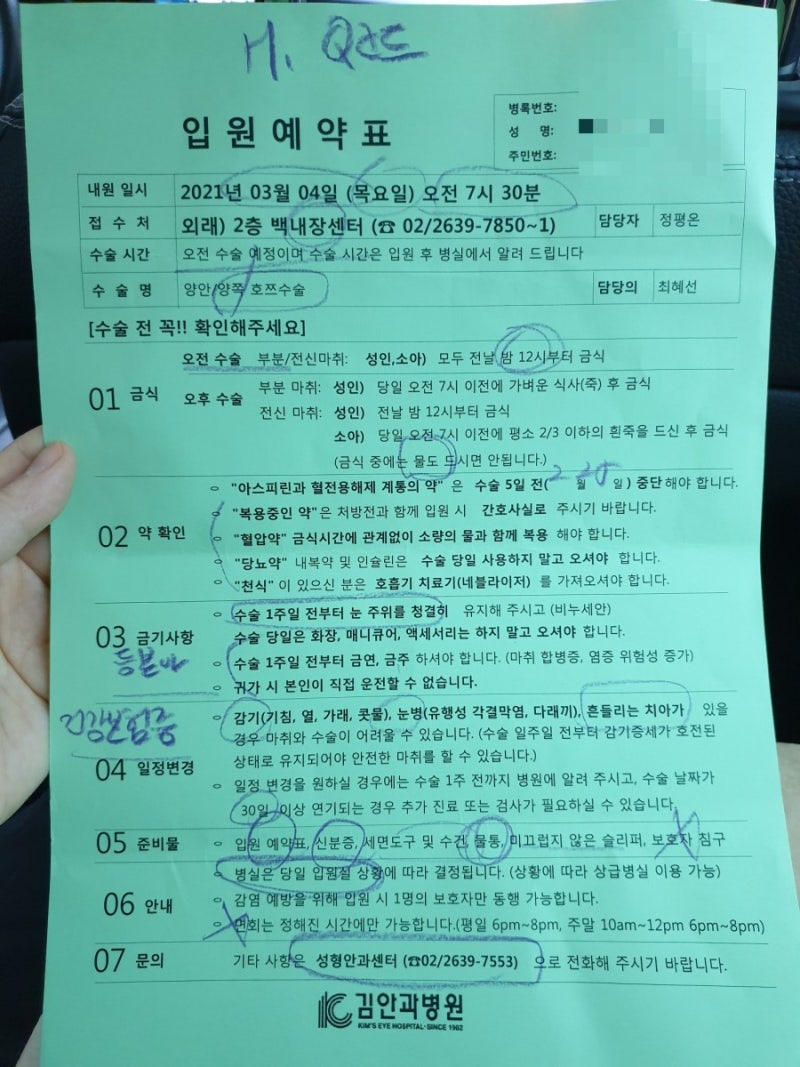 입원예약표
병록번호:
성 명:
주민번호:
내원 일시 2021년 03월 04일 (목요일) 오전 7시 30분
접 수 처 외래) 2층 백내장센터 (☎ 02/2639-7850~1) 담당자 정평온
수술 시간 오전 수술 예정이며 수술 시간은 입원 후 병실에서 알려 드립니다
수 술 명 양안/양쪽 호쯔수술 담당의 최혜선
[수술 전 꼭!! 확인해주세요]
01 금식
오전 수술 부분/전신마취: 성인,소아) 모두 전날 밤 12시부터 금식
오후 수술 부분 마취: 성인) 당일 오전 7시 이전에 가벼운 식사(죽) 후 금식
전신 마취: 성인) 전날 밤 12시부터 금식
소아) 당일 오전 7시 이전에 평소 2/3 이하의 흰죽을 드신 후 금식
(금식 중에는 물도 드시면 안됩니다.)
02 약 확인
"아스피린과 혈전용해제 계통의 약" 은 수술 5일 전( 2월 일) 중단해야 합니다.
"복용중인 약"은 처방전과 함께 입원 시 간호사실로 주시기 바랍니다.
"혈압약" 금식시간에 관계없이 소량의 물과 함께 복용 해야 합니다.
"당뇨약" 내복약 및 인슐린은 수술 당일 사용하지 말고 오셔야 합니다.
"천식" 이 있으신 분은 호흡기 치료기(네블라이저) 를 가져오셔야 합니다.
03 금기사항
수술 1주일 전부터 눈 주위를 청결히 유지해 주시고 (비누세안)
수술 당일은 화장, 매니큐어, 액세서리는 하지 말고 오셔야 합니다.
수술 1주일 전부터 금연, 금주 하셔야 합니다. (마취 합병증, 염증 위험성 증가)
귀가 시 본인이 직접 운전할 수 없습니다.
건강보험증
04 일정변경
감기(기침, 열, 가래, 콧물), 눈병(유행성 각결막염, 다래끼), 흔들리는 치아가 있을
경우 마취와 수술이 어려울 수 있습니다. (수술 일주일 전부터 감기증세가 호전된
상태로 유지되어야 안전한 마취를 할 수 있습니다.)
일정 변경을 원하실 경우에는 수술 1주 전까지 병원에 알려 주시고, 수술 날짜가
30일 이상 연기되는 경우 추가 진료 또는 검사가 필요하실 수 있습니다.
05 준비물
입원 예약표, 신분증, 세면도구 및 수건, 물통, 미끄럽지 않은 슬리퍼, 보호자 침구
06 안내
병실은 당일 입원실 상황에 따라 결정됩니다. (상황에 따라 상급병실 이용 가능)
감염 예방을 위해 입원 시 1명의 보호자만 동행 가능합니다.
면회는 정해진 시간에만 가능합니다.(평일 6pm~8pm, 주말 10am~12pm 6pm~8pm)
07 문의
기타 사항은 성형안과센터 (☎02/2639-7553) 으로 전화해 주시기 바랍니다.
김안과병원
KIM'S EYE HOSPITAL·SINCE 1962